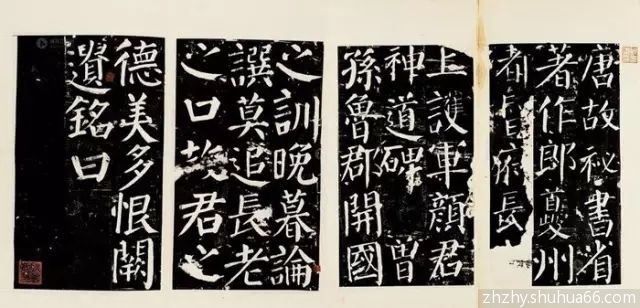 唐故秘書省
著作郎夔州
都督府長
上護軍顏君
神道碑 曾
孫魯郡開國
之訓晚暮論
譔莫追長老
之口故君之
德美多恨闕
遺銘曰
zhzhy.shuhua66.com